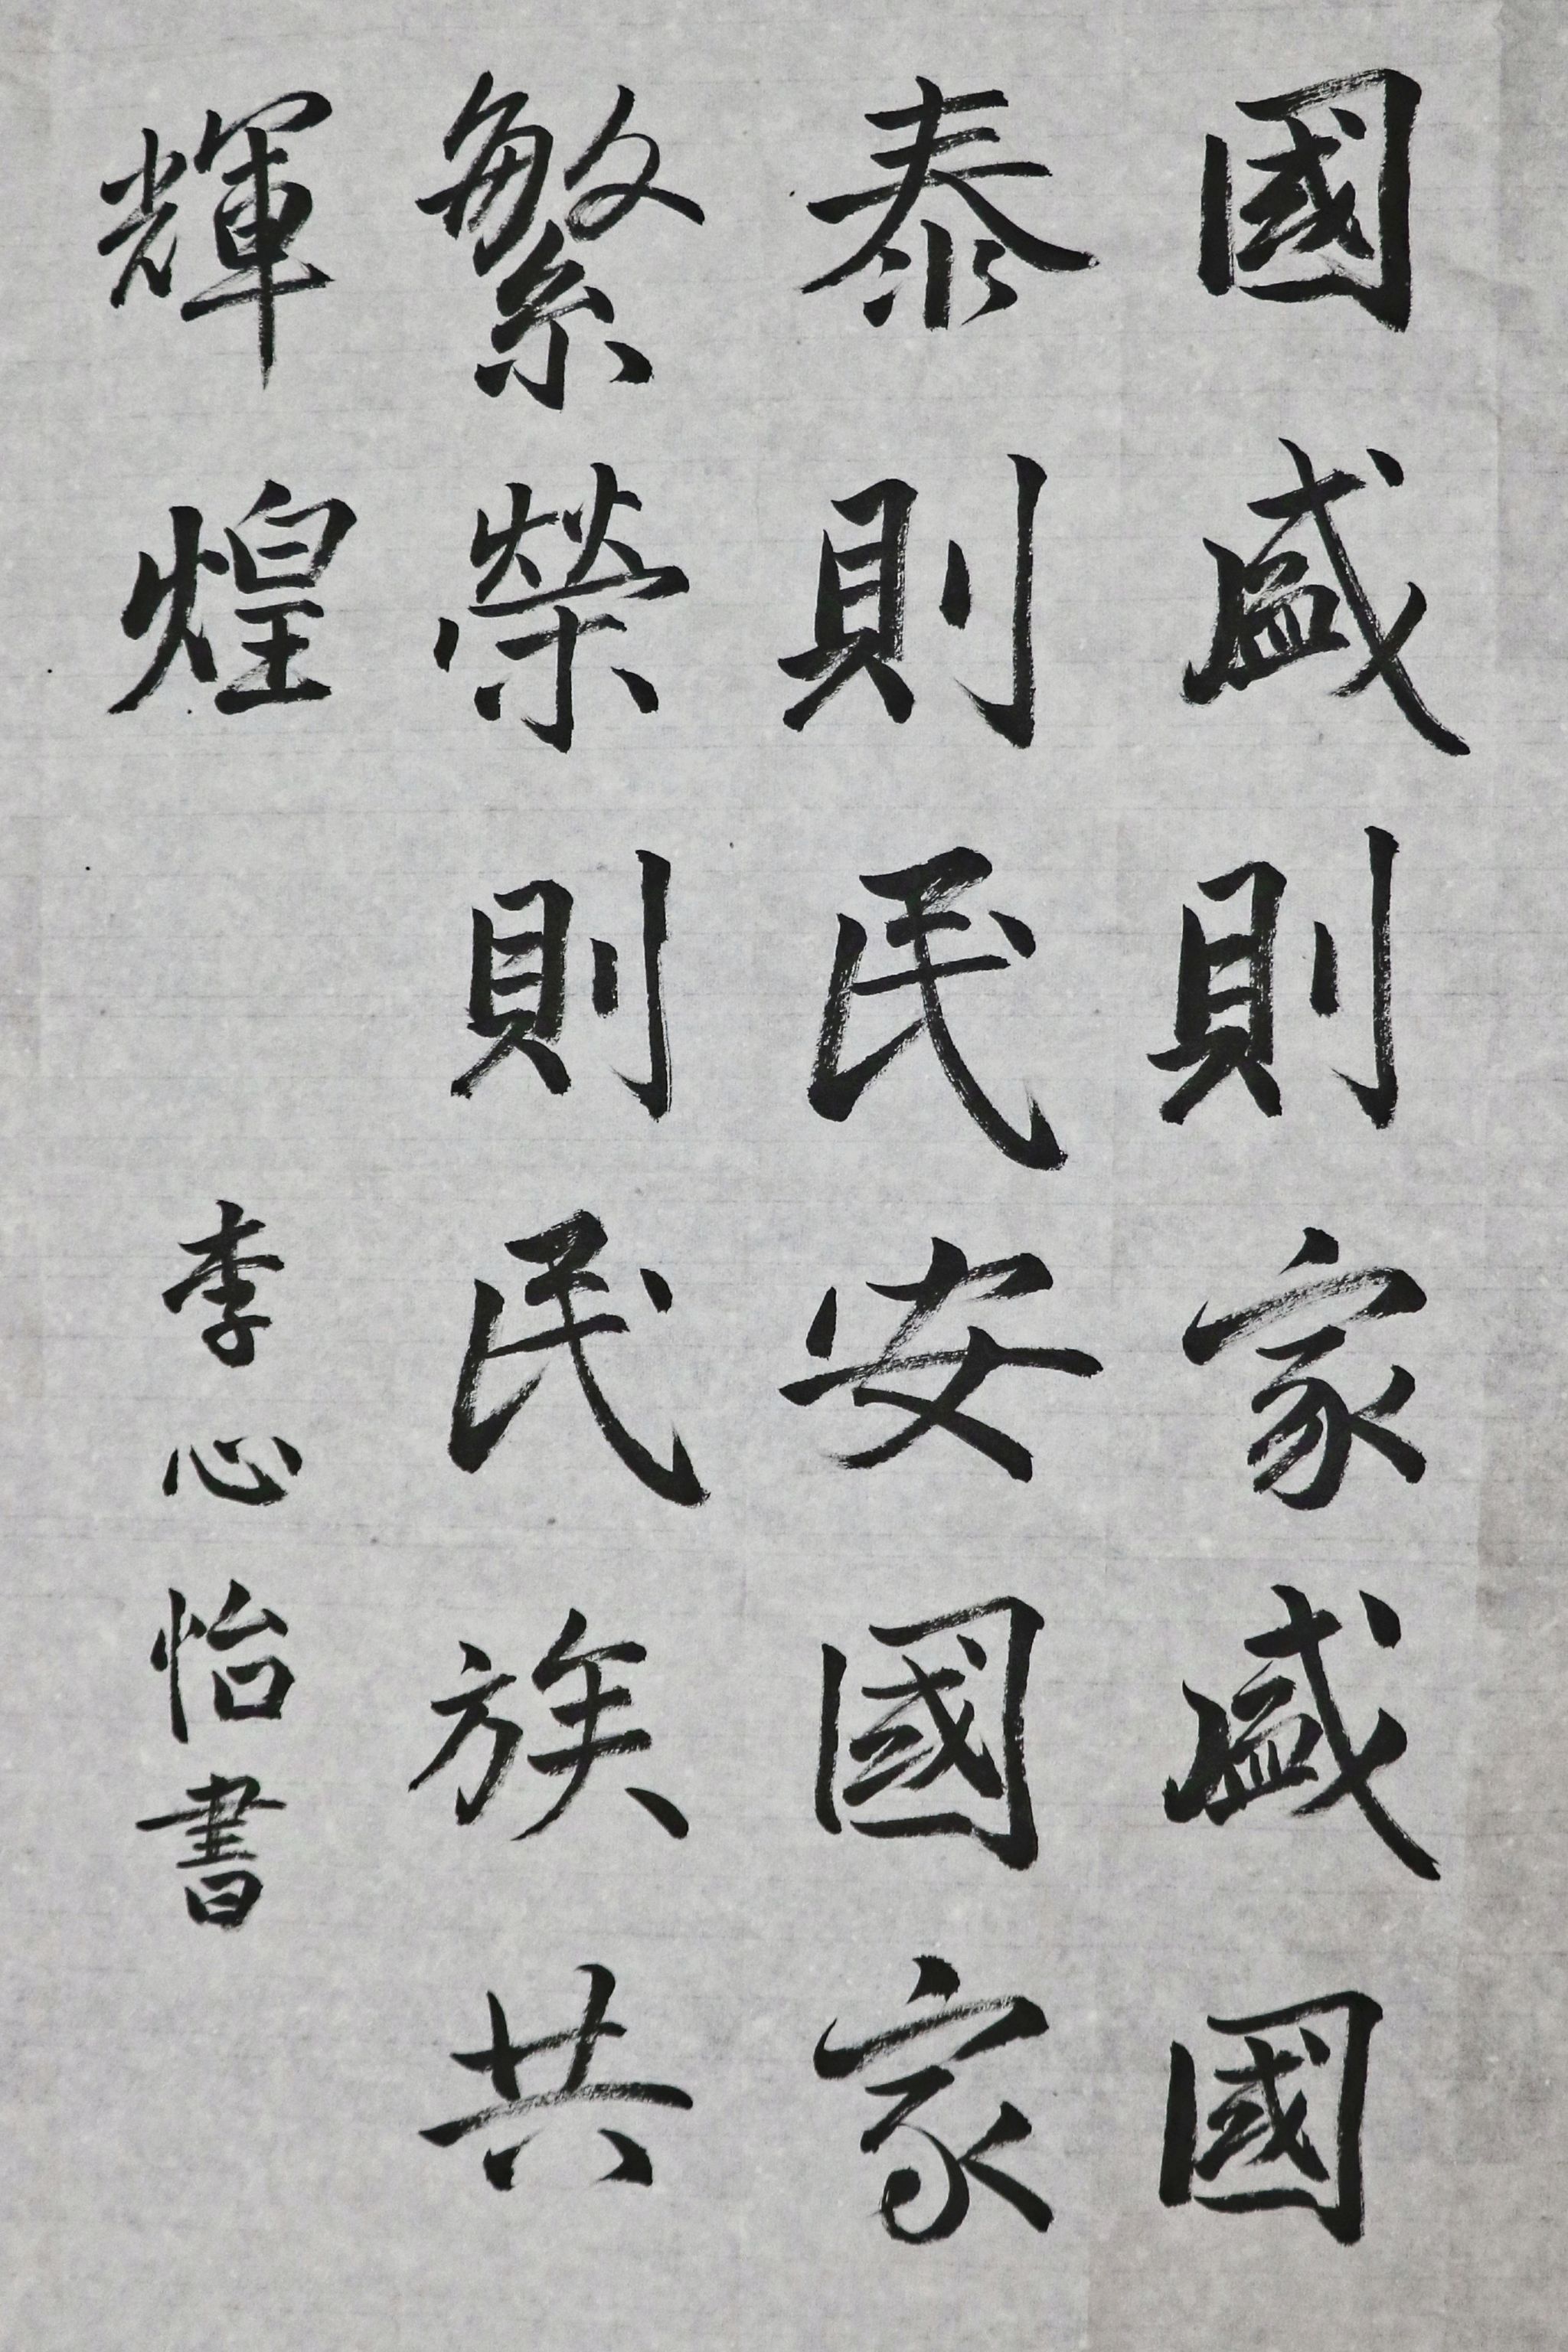 國盛則家盛國
泰則民安國家
繁榮則民族共
輝煌
李心怡書